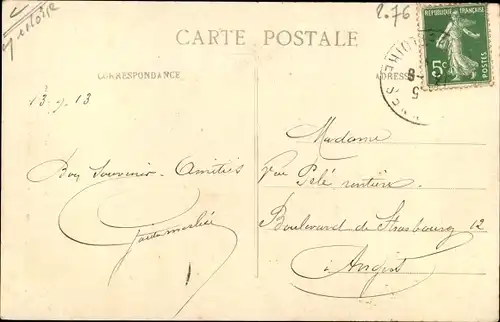 2.76
RÉPUBLIQUE FRANÇAISE
5c
POSTES
CARTE POSTALE
CORRESPONDANCE
ADRESSE
13.9.13
Madame
Bon Souvenir. Amitiés
Vve Pelé rentière
Boulevard de Strasbourg 12
à Angers